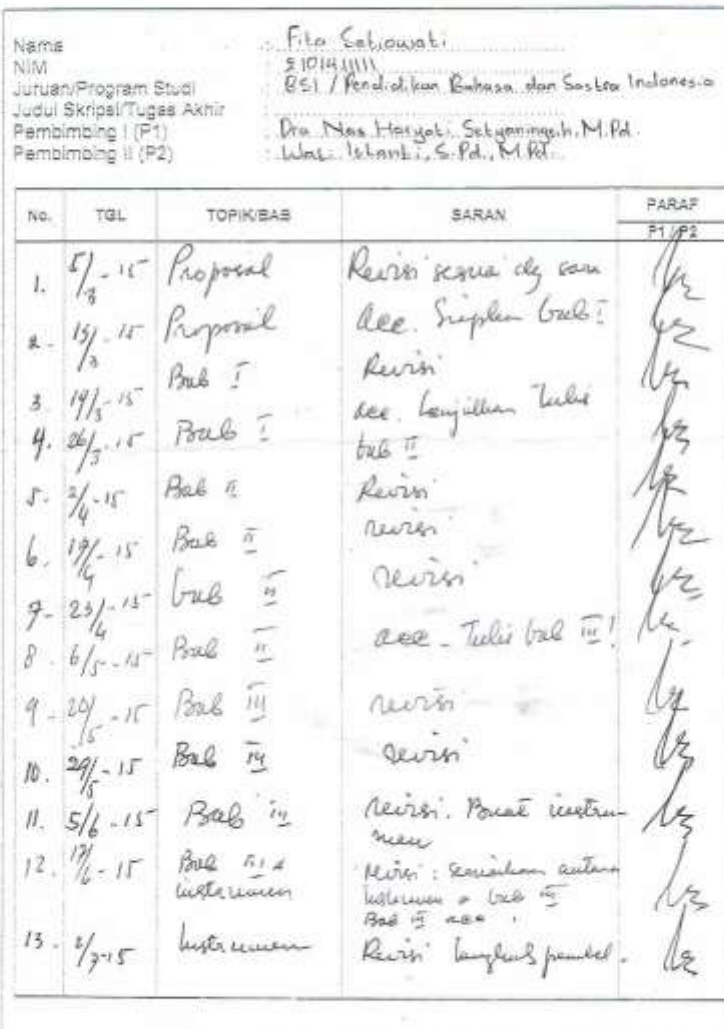 Nama : Fita Setiowati
NIM : 2101411111
Jurusan/Program Studi : BSI / Pendidikan Bahasa dan Sastra Indonesia
Judul Skripsi/Tugas Akhir :
Pembimbing I (P1) : Dra Nas Haryati Setyaningsih, M.Pd.
Pembimbing II (P2) : Wati Istanti, S.Pd., M.Pd.
No. TGL TOPIK/BAB SARAN PARAF
P1 / P2
1. 5/3 - 15 Proposal Revisi sesuai dg saran
2. 13/3 - 15 Proposal acc. Siapkan bab I
3. 19/3 - 15 Bab I Revisi
4. 26/3 - 15 Bab I acc. Lanjutkan tulis
bab II
5. 2/4 - 15 Bab II Revisi
6. 17/4 - 15 Bab II revisi
7. 23/4 - 15 bab II revisi
8. 6/5 - 15 Bab II acc - Tulis bab III!
9. 20/5 - 15 Bab III revisi
10. 29/5 - 15 Bab III revisi
11. 5/6 - 15 Bab III revisi. Buat instru-
men
12. 17/6 - 15 Bab III & revisi : sesuaikan antara
instrumen instrumen & bab III
Bab III acc
13. 2/7-15 Instrumen Revisi langkah pembel.